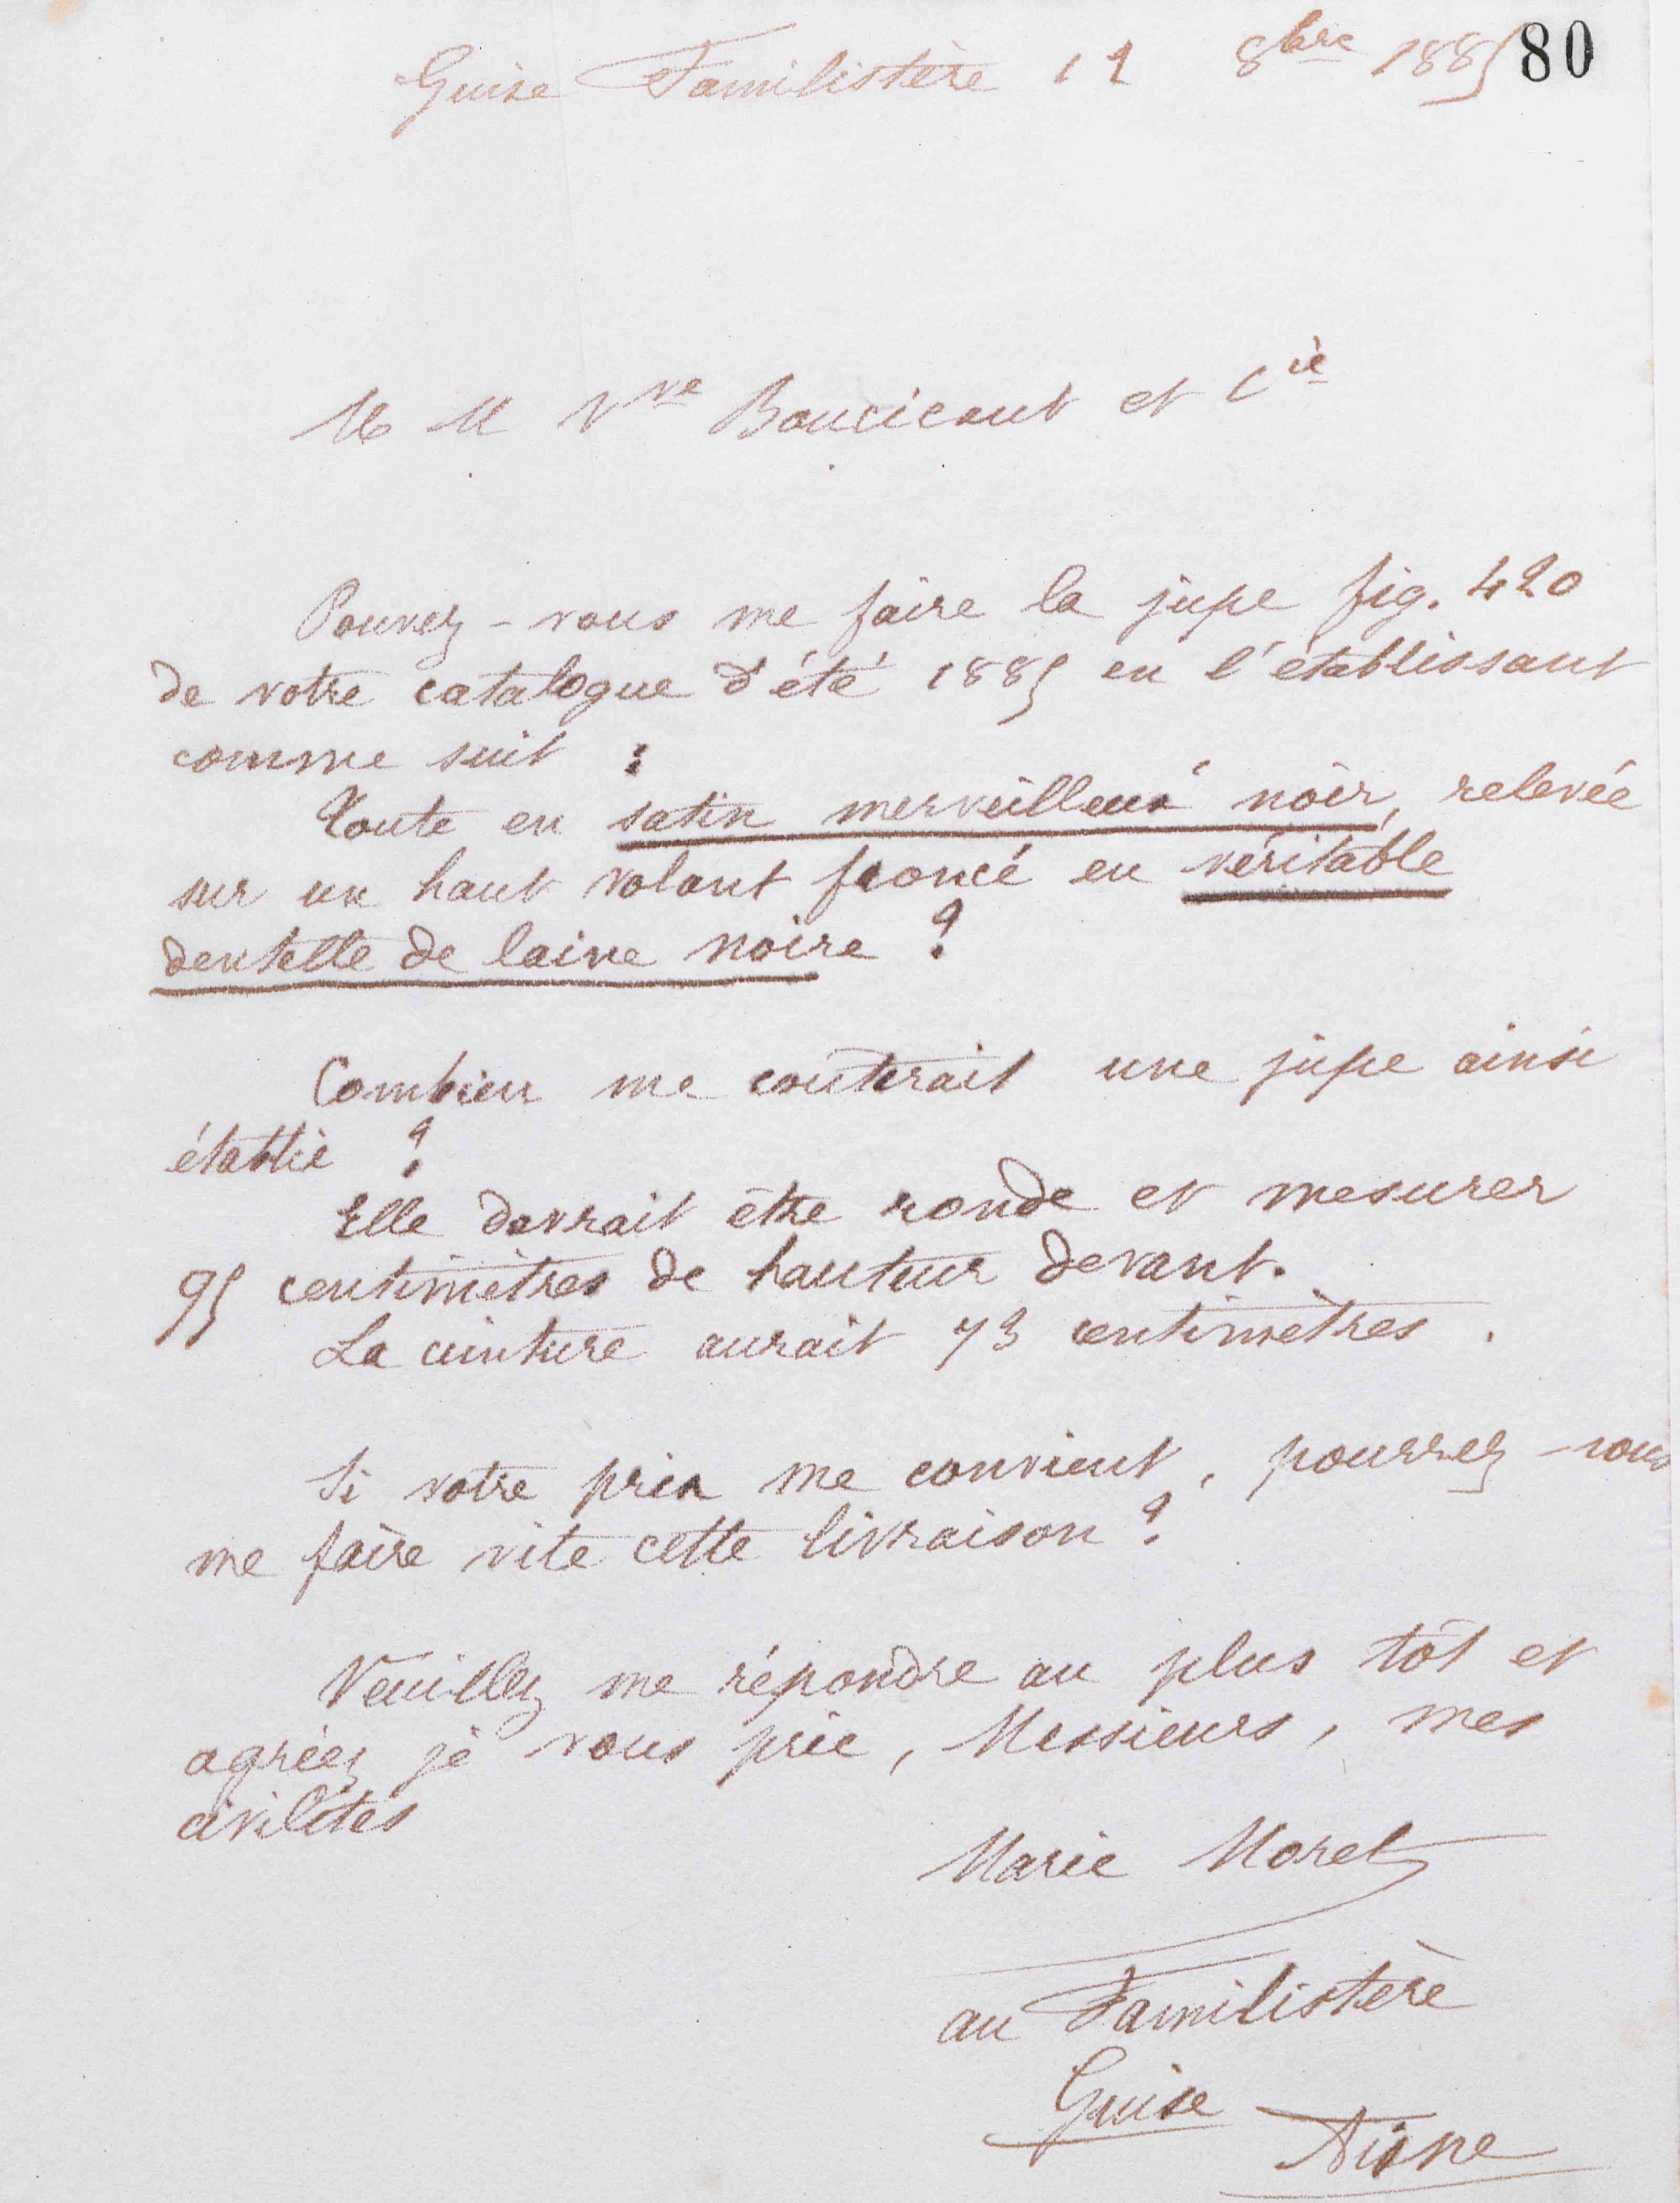 Guise Familistère 12 8bre 1885 80
MM Vve Boucicaut et Cie
Pouvez-vous me faire la jupe fig. 420
de votre catalogue d'été 1885 en l'établissant
comme suit :
Toute en satin merveilleux noir, relevée
sur un haut volant froncé en véritable
dentelle de laine noire ?
Combien me coûterait une jupe ainsi
établie ?
Elle devrait être ronde et mesurer
95 centimètres de hauteur devant.
La ceinture aurait 73 centimètres.
Si votre prix me convient, pourrez-vous
me faire vite cette livraison ?
Veuillez me répondre au plus tôt et
agréez je vous prie, Messieurs, mes
civilités
Marie Moret
au Familistère
Guise
Aisne